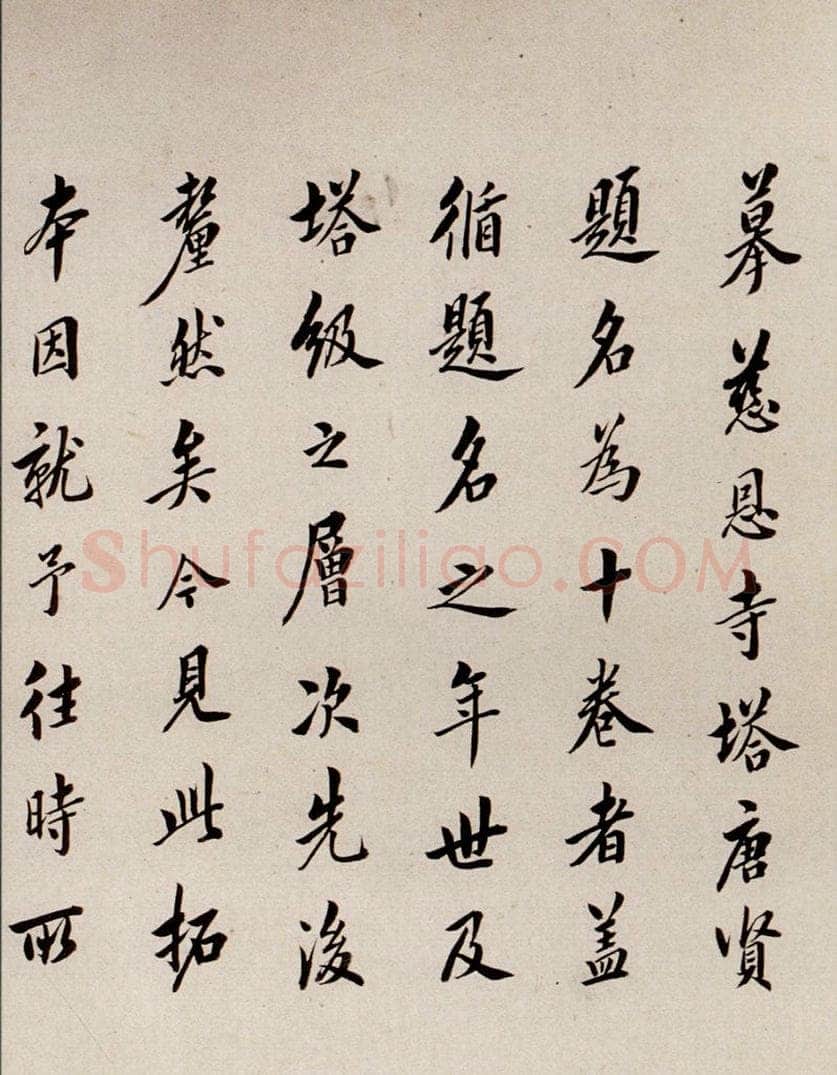 摹慈恩寺塔唐賢
題名為十卷者盖
循題名之年世及
塔級之層次先後
釐然矣今見此拓
本因就予往時所
Shufaziliao.COM